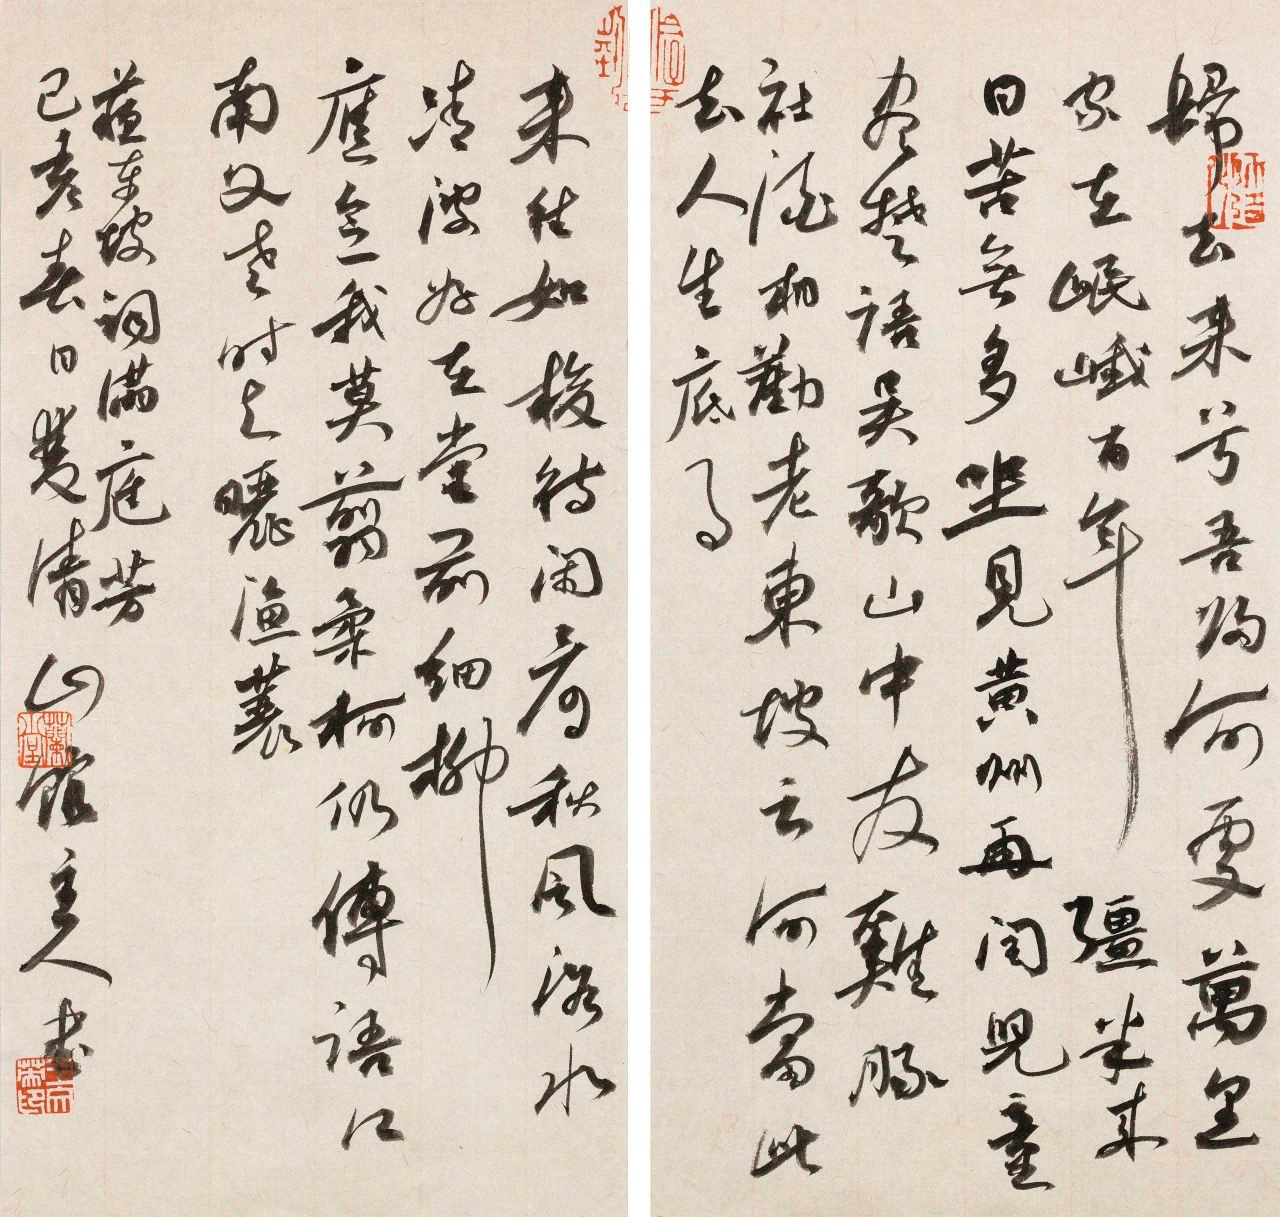 歸去來兮吾歸何處萬里
家在岷峨百年彊半來
日苦無多坐見黃州再閏兒童
盡楚語吳歌山中友雞豚
社酒相勸老東坡云何當此
去人生底事
來往如梭待閑看秋風洛水
清波好在堂前細柳
應念我莫翦柔柯仍傳語江
南父老時与曬漁蓑
蘇東坡詞滿庭芳
己亥春日雙清山館主人書